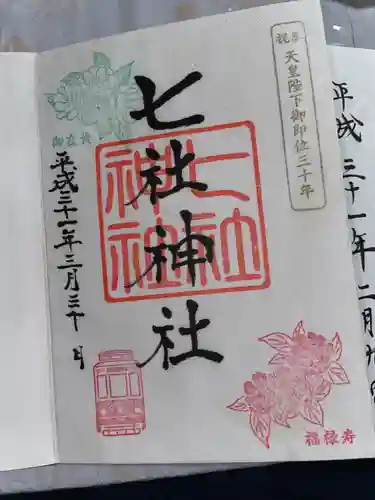 奉祝
天皇陛下御即位三十年
七社神社
七社神社
御衣黄
平成三十一年三月三十日
福禄寿
平成三十一年二月